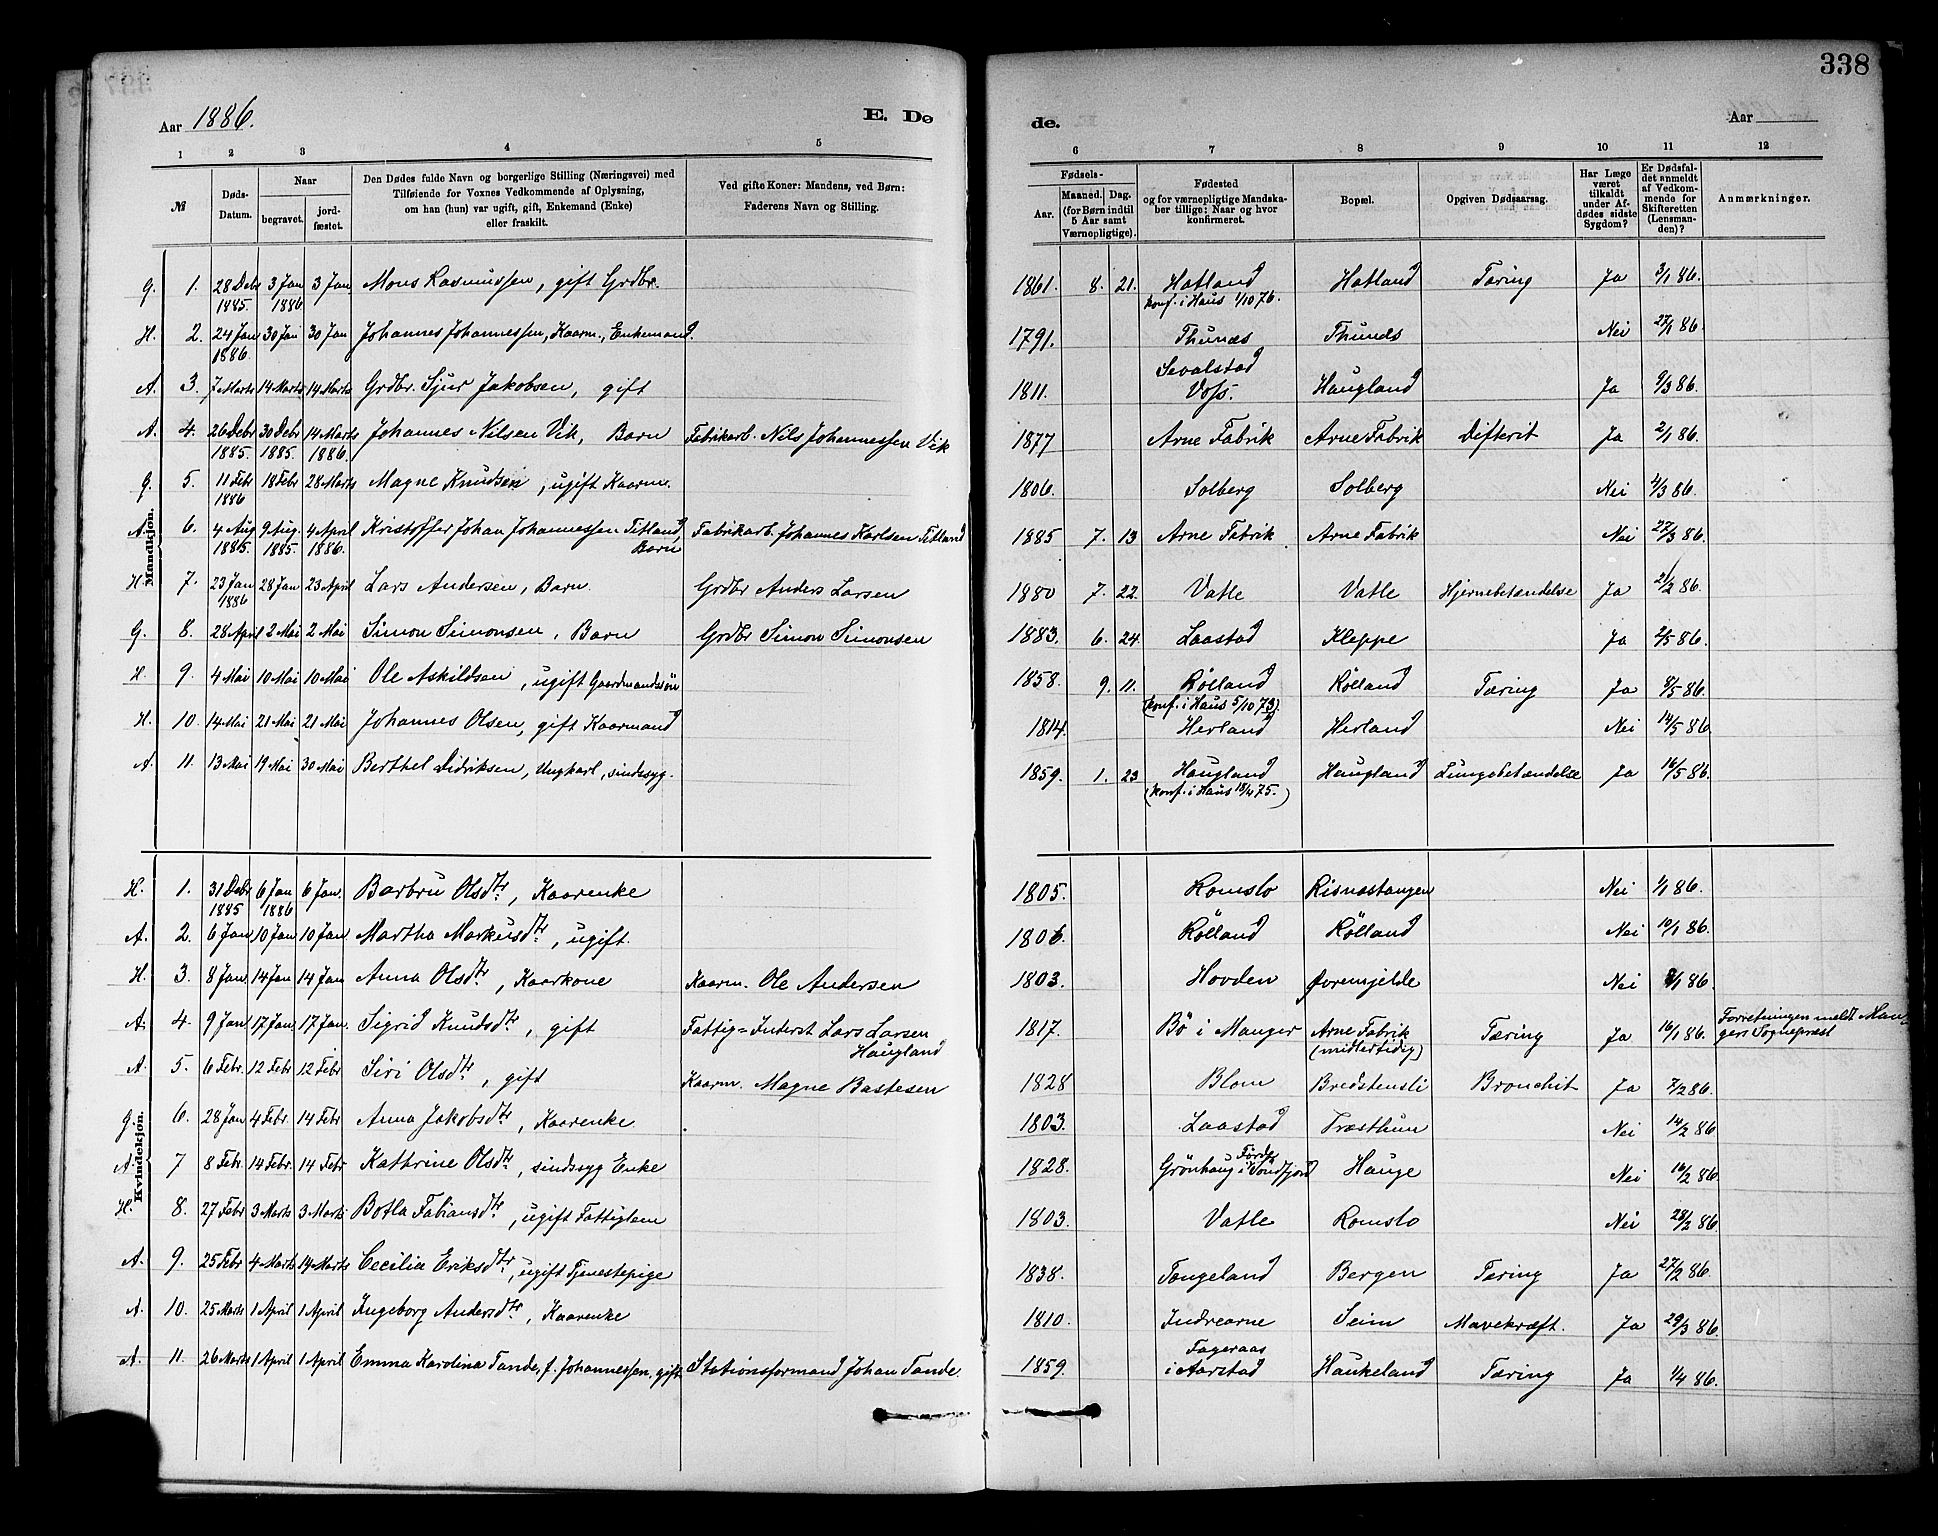 338
Aar 1886. E. Dø de. Aar
1 2 3 4 5 6 7 8 9 10 11 12
№ Døds-Datum. Naar begravet. jordfæstet. Den Dødes fulde Navn og borgerlige Stilling (Næringsvei) med Tilføiende for Voxnes Vedkommende af Oplysning, om han (hun) var ugift, gift, Enkemand (Enke) eller fraskilt. Ved gifte Koner: Mandens, ved Børn: Faderens Navn og Stilling. Fødsels- Aar. Maaned. Dag. (for Børn indtil 5 Aar samt Værnepligtige). Fødested og for værnepligtige Mandskaber tillige: Naar og hvor konfirmeret. Bopæl. Opgiven Dødsaarsag. Har Læge været tilkaldt under Afdødes sidste Sygdom? Er Dødsfaldet anmeldt af Vedkommende for Skifteretten (Lensmanden)? Anmærkninger.
Mandkjøn.
G. 1. 28 Debr 1885. 3 Jan 1886 3 Jan. Mons Rasmussen, gift Grdbr. 1861. 8. 21. Hatland konf. i Haus 1/10 76. Hatland Tæring Ja 3/1 86.
H. 2. 24 Jan 1886. 30 Jan 30 Jan Johannes Johannessen, Kaarm., Enkemand. 1791. Thunæs Thunæs Nei 27/1 86.
A. 3. 7 Marts 14 Marts 14 Marts Grdbr. Sjur Jakobsen, gift 1811. Sevalstad Voss. Haugland Ja 9/3 86.
A. 4. 26 Debr 1885. 30 Debr 1885. 14 Marts 1886. Johannes Nilsen Vik, Barn Fabrikarb. Nils Johannessen Vik 1877 Arne Fabrik Arne Fabrik Difterit Ja 2/1 86.
G. 5. 11 Febr 1886 18 Febr 28 Marts Magne Knudsen, ugift Kaarm. 1806. Solberg Solberg Nei 4/3 86.
A. 6. 4 Aug 1885. 9 Aug. 1885. 4 April 1886. Kristoffer Johan Johannessen Titland, Barn Fabrikarb. Johannes Karlsen Titland 1885 7. 13 Arne Fabrik Arne Fabrik Nei 27/3 86.
H. 7. 23 Jan 1886 28 Jan 23 April Lars Andersen, Barn. Grdbr Anders Larsen 1880 7. 22. Vatle Vatle Hjernebetændelse Ja 21/2 86.
G. 8. 28 April 2 Mai 2 Mai Simon Simonsen, Barn Grdbr Simon Simonsen 1883. 6. 24. Laastad Kleppe Ja 2/5 86.
H. 9. 4 Mai 10 Mai 10 Mai Ole Askildsen, ugift Gaardmandssøn 1858. 9. 11. Rølland (konf. i Haus 5/10 73). Rølland Tæring Ja 8/5 86.
H. 10. 14 Mai 21 Mai 21 Mai Johannes Olsen, gift Kaarmand 1814. Herland Herland Nei 14/5 86.
A. 11. 13 Mai 19 Mai 30 Mai Berthel Didriksen, Ungkarl, sindssyg. 1859. 1. 23 Haugland (konf. i Haus 18/4 75.) Haugland Lungebetændelse Ja 16/5 86.
Kvindekjøn.
H. 1. 31 Debr 1885 6 Jan 1886 6 Jan. Barbru Olsdtr, Kaarenke 1805. Romslo Risnesstangen Nei 1/1 86.
A. 2. 6 Jan 10 Jan 10 Jan Martha Markusdtr, ugift. 1806. Rølland Rølland Nei 10/1 86.
H. 3. 8 Jan. 14 Jan 14 Jan Anna Olsdtr, Kaarkone Kaarm. Ole Andersen 1803. Hovden Øvremjelde Nei 8/1 86.
A. 4. 9 Jan 17 Jan 17 Jan. Sigrid Knudsdtr, gift Fattig=Inderst Lars Larsen Haugland 1817. Bö i Manger Arne Fabrik (midlertidig) Tæring Ja 16/1 86. Forretningen meldt Mangers Sognepræst
A. 5. 6 Febr. 12 Febr 12 Febr Siri Olsdtr, gift Kaarm. Magne Bastesen 1828 Blom Bredstensli Bronchit Ja 7/2 86.
G. 6. 28 Jan 4 Febr. 14 Febr Anna Jakobsdtr, Kaarenke 1803. Laastad Træsthun Nei 14/2 86
A. 7 8 Febr. 14 Febr. 14 Febr Kathrine Olsdtr, sindssyg Enke 1828. Grönhaug i Förde Söndfjord Hauge Nei 16/2 86
H. 8. 27 Febr 3 Marts 3 Marts Botla Fabiansdtr, ugift Fattiglem 1803. Vatle Romslo Nei 28/2 86
A. 9. 25 Febr 4 Marts 14 Marts Cecilia Eriksdtr, ugift Tjenestepige 1838. Tongeland Bergen Tæring Ja 27/2 86.
A. 10. 25 Marts 1 April 1 April Ingeborg Andersdtr, Kaarenke 1810. Indrearne Seim Mavekræft. Ja 29/3 86.
A. 11. 26 Marts 1 April 1 April Emma Karolina Tande, f. Johannessen, gift Stationsformand Johan Tande. 1859. Fageraas i Aarstad Haukeland Tæring Ja 1/4 86.